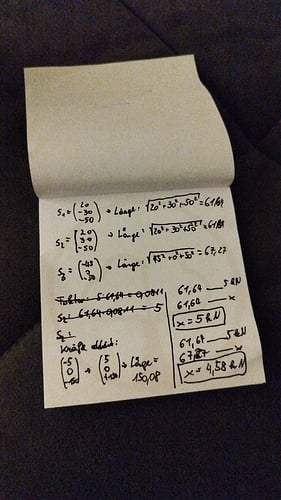 S₁ = (20 -30 -50) → Länge: √20² + 30² + 50² = 61,64
S₂ = (20 30 -50) → Länge: √20² + 30² + 50² = 61,64
S₃ = (-45 0 -50) → Länge: √45² + 0² + 50² = 67,27
5 : 61,64 = 0,0811
S₂: 61,64 · 0,0811 = 5
S₂:
Kräfte allein:
(-5 0 -150) → (5 0 +150) → Länge =
150,08
61,64 — 5 kN
61,64 — x
x = 5 kN
61,64 — 5 kN
67,27 — x
x = 4,58 kN